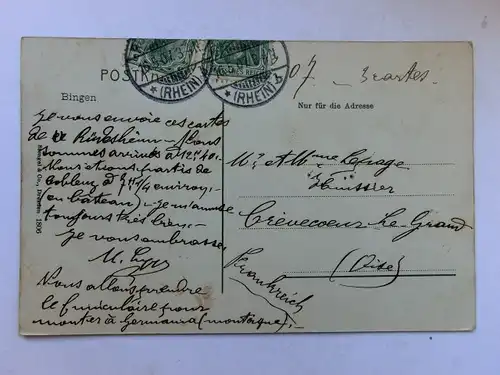 POSTKARTE
(RHEIN)
(RHEIN)
07. 3 cartes.
Bingen
Nur für die Adresse
Je vous envoie ces cartes
de Rüdesheim. Nous
sommes arrivés à 12h40.
Nous étions partis de
Coblenz à 7h 1/4 environ,
(en bateau) - je m'amuse
toujours très bien,-
Je vous embrasse
M.
Nous allons prendre
le funiculaire pour
monter à Germania (montagne).-
Stengel & Co., Dresden 1806
Mr et Mme Lepage
Huissier
Crèvecoeur-Le-Grand
(Oise)
Frankreich